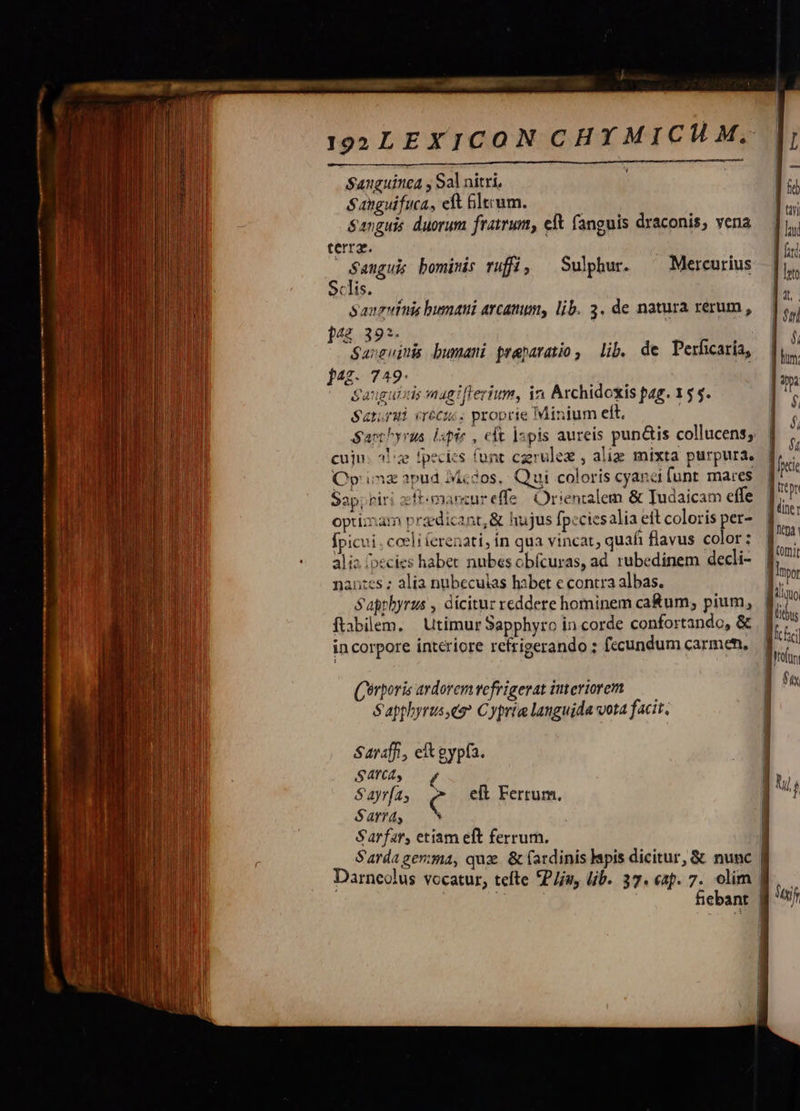 192 LEXICON CHYMICUM.
Sanguinea, Sal nitri.
Sanguisuca, est filtrum.
Sanguis duorum fratrum, est sanguis draconis, vena
terræ.
Sanguis hominis ruffi, Sulphur. Mercurius
Solis.
Sanguinis humani arcanum, lib. 3. de natura rerum,
pag 392.
Sanguinis humani præparatio, lib. de Persicaria,
pag. 749.
Sanguinis magisterium, in Archidoxis pag. 155.
Saturni proprie Minium est.
Sapphyrus lapis, est lapis aureis punctis collucens,
cujus aliæ species sunt cærulex, aliæ mixta purpura.
Optimæ apud Medos. Qui coloris cyanei sunt mares
Sapphiri æstimantur esse Orientalem & Iudaicam esse
optimam prædicant, & hujus species alia est coloris per-
spicui, cœli serenati, in qua vincat, quasi flavus color:
alia species habet nubes obscuras, ad rubedinem decli-
nantes; alia nubeculas habet e contra albas.
Sapphyrus, dicitur reddere hominem castum, pium,
stabilem. Utimur Sapphyro in corde confortando, &
in corpore interiore refrigerando: secundum carmen.
Corporis ardorem refrigerat interiorem
Sapphyrus, & Cypriæ languida vota facit.
Saraffi, est gypsa.
Sarca,
Sayrsa, est Ferrum.
Sarra,
Sarsar, etiam est ferrum.
Sarda gemma, quæ & sardinis lapis dicitur, & nunc
Darneolus vocatur, teste Plin, lib. 37. cap. 7. olim
fiebant